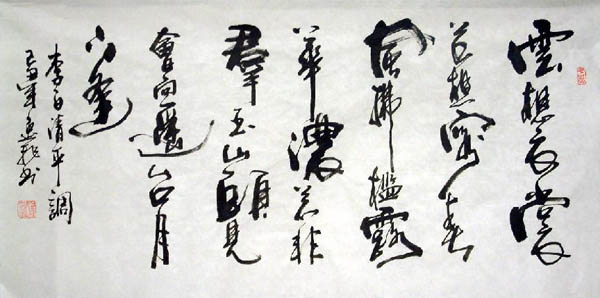 雲想衣裳
花想容春
風拂檻露
華濃若非
羣玉山頭見
會向瑤台月
下逢
李白清平調
書